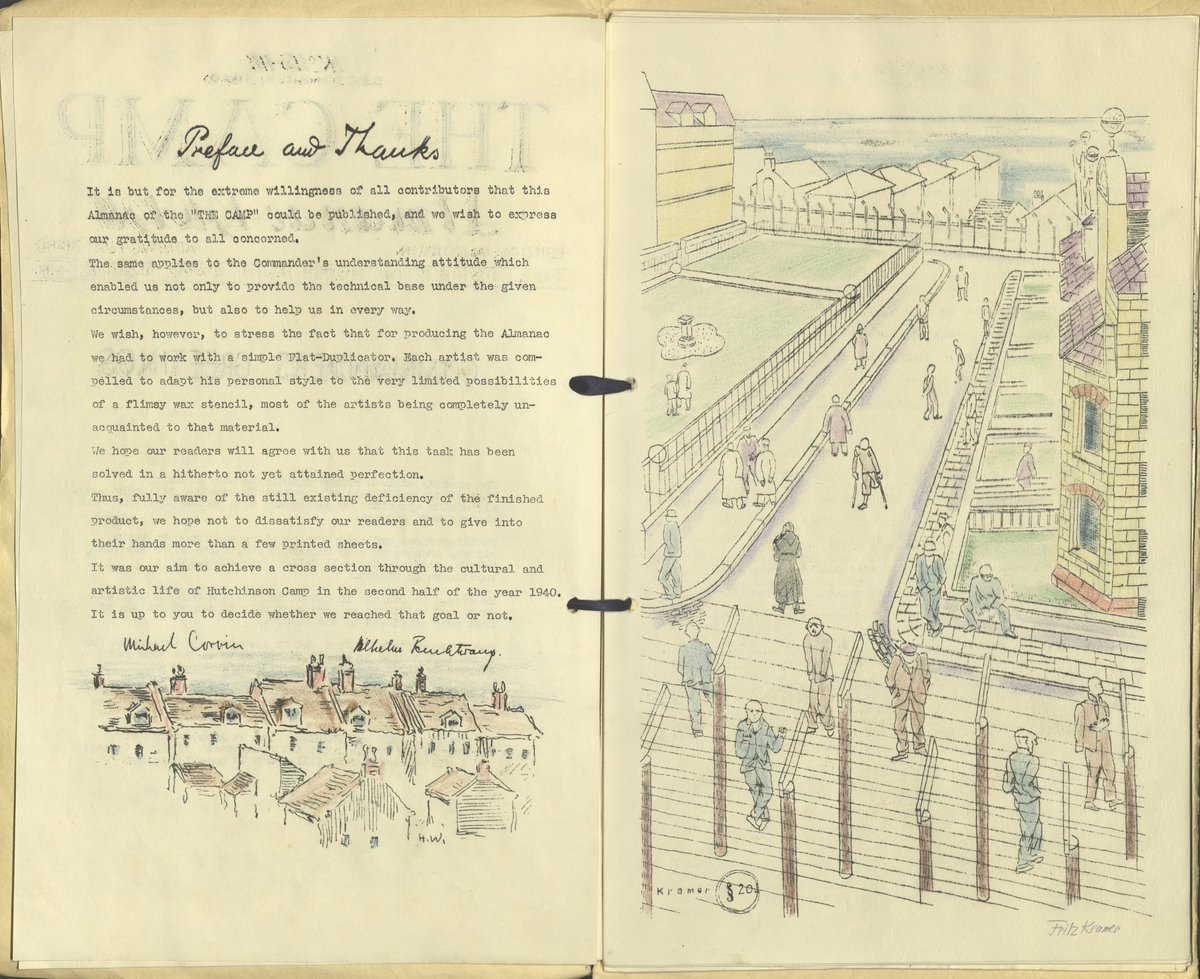 Preface and Thanks
It is but for the extreme willingness of all contributors that this
Almanac of the "THE CAMP" could be published, and we wish to express
our gratitude to all concerned.
The same applies to the Commander's understanding attitude which
enabled us not only to provide the technical base under the given
circumstances, but also to help us in every way.
We wish, however, to stress the fact that for producing the Almanac
we had to work with a simple Flat-Duplicator. Each artist was com-
pelled to adapt his personal style to the very limited possibilities
of a flimsy wax stencil, most of the artists being completely un-
acquainted to that material.
We hope our readers will agree with us that this task has been
solved in a hitherto not yet attained perfection.
Thus, fully aware of the still existing deficiency of the finished
product, we hope not to dissatisfy our readers and to give into
their hands more than a few printed sheets.
It was our aim to achieve a cross section through the cultural and
artistic life of Hutchinson Camp in the second half of the year 1940.
It is up to you to decide whether we reached that goal or not.
Michael Corvin
H.W.
Kramer § 20.
Fritz Kramer